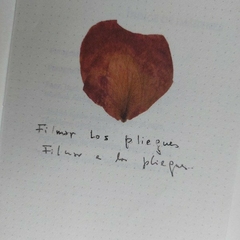 Filmar los pliegues
Filmar a los pliegues